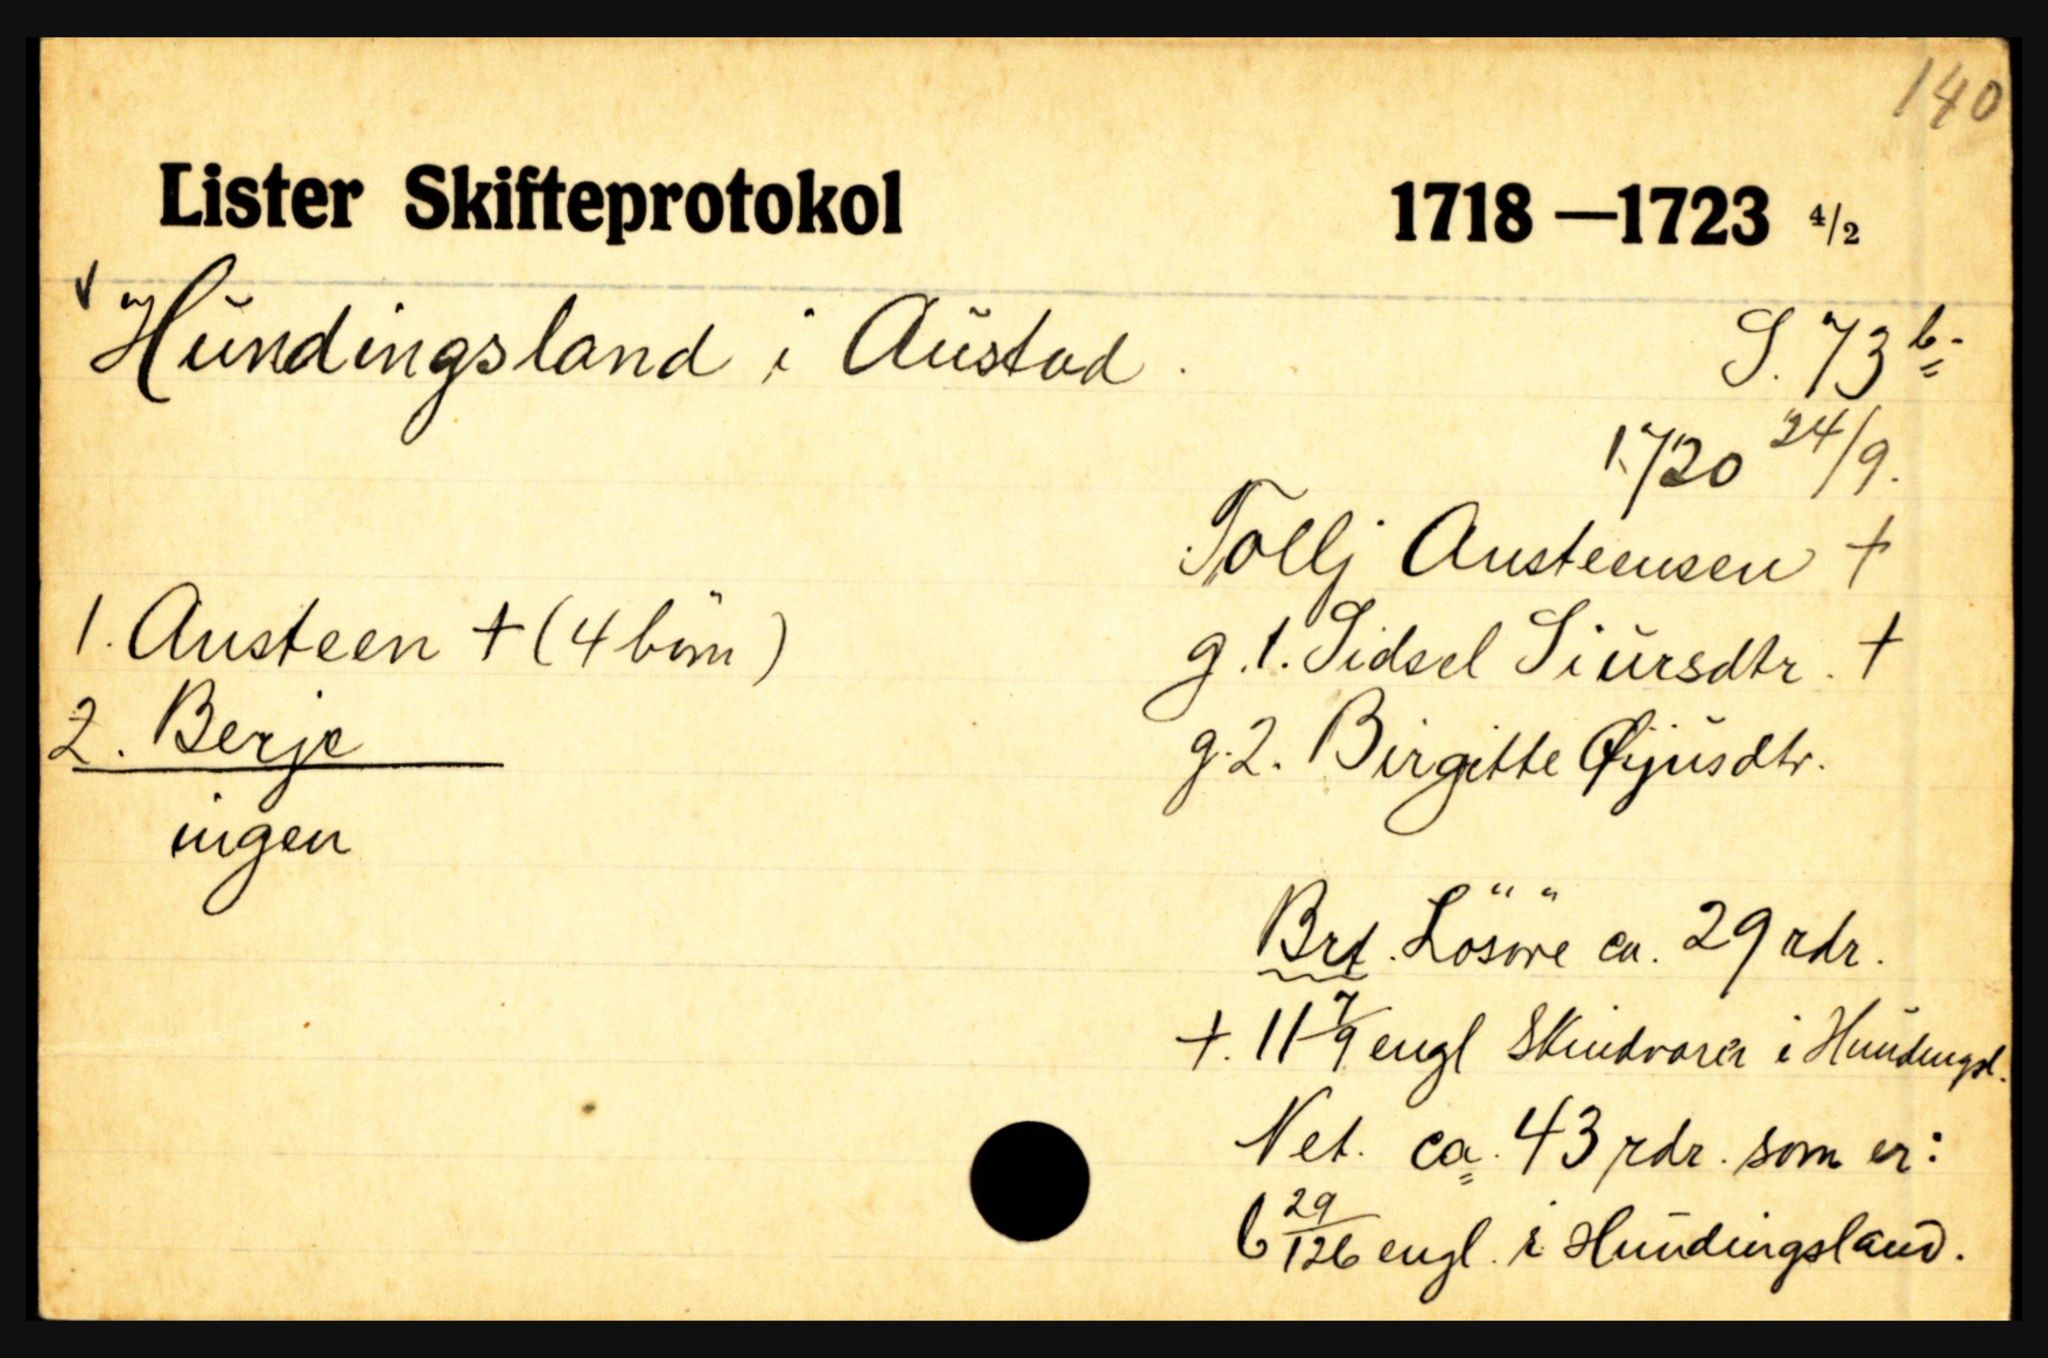 140
Lister Skifteprotokol 1718—1723 4/2
Hundingsland i Austad. S. 73 b.
1720 24/9.
Tollj Austeensen +
1. Austeen + (4 börn)
g. 1. Sidsel Siursdtr. +
2. Berje
g. 2. Birgitte Øijusdtr.
ingen
Brt. Lösöre ca. 29 rdr.
+. 11 7/9 engl Skindvarer i Hundingsl.
Net. ca. 43 rdr. som er:
6 29/126 engl. i Hundingsland.